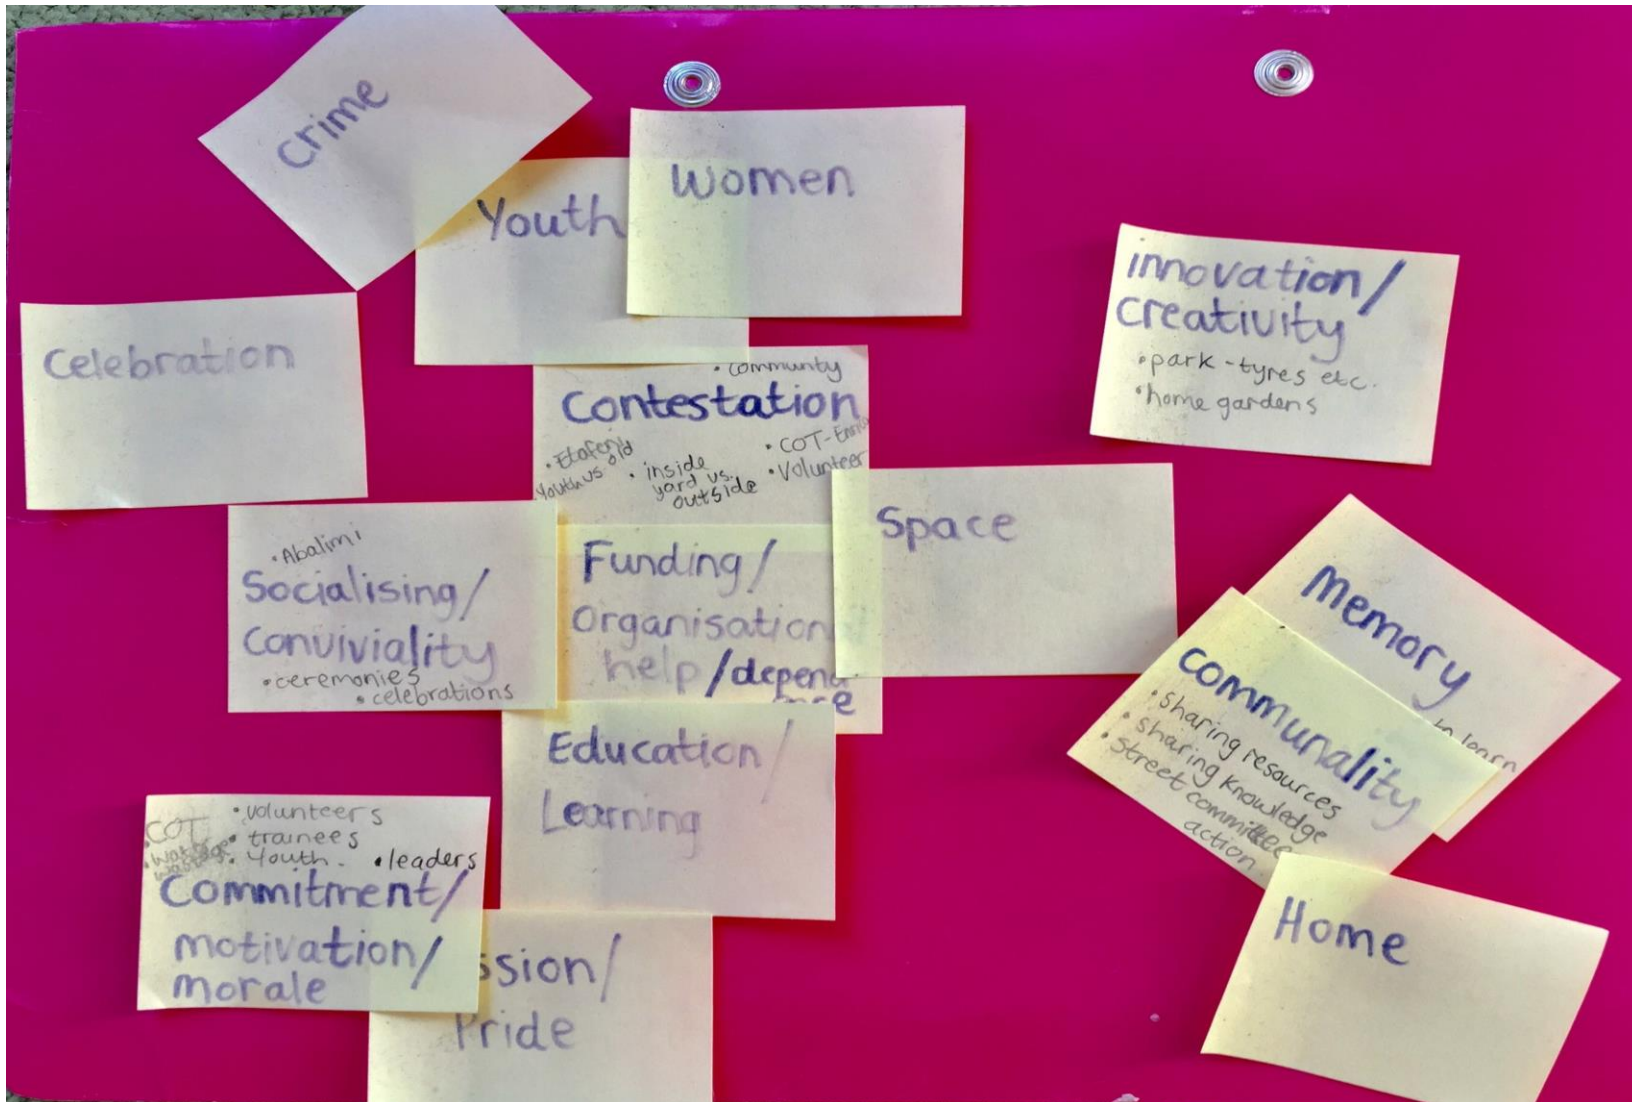 Crime
Youth
Women
innovation/
creativity
• park - tyres etc.
• home gardens
Celebration
• community
Contestation
Youth vs old
• inside
yard vs.
outside
• COT-
• Volunteer
Space
• Abalimi
Socialising/
Conviviality
• ceremonies
• celebrations
Funding/
Organisation
help/depend
ence
Memory
learn
communality
• sharing resources
• sharing knowledge
• street committee
action
Education/
Learning
• COT
• volunteers
• trainees
• Youth.
• leaders
Commitment/
motivation/
morale
ssion/
Pride
Home